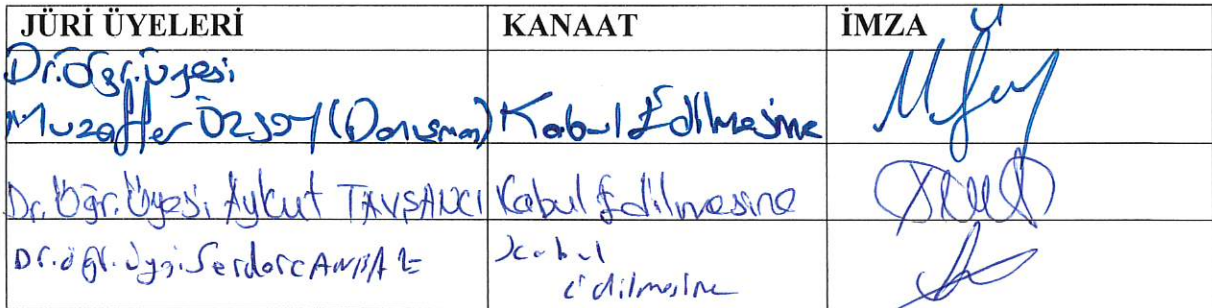 JÜRİ ÜYELERİ KANAAT İMZA
Dr.Öğr.Üyesi
Muzaffer ÖZSOY (Danışman) Kabul Edilmesine
Dr. Öğr. Üyesi Aykut TAVŞANCI Kabul Edilmesine
Dr.öğr.üyesi Serdar Kabul
edilmesine